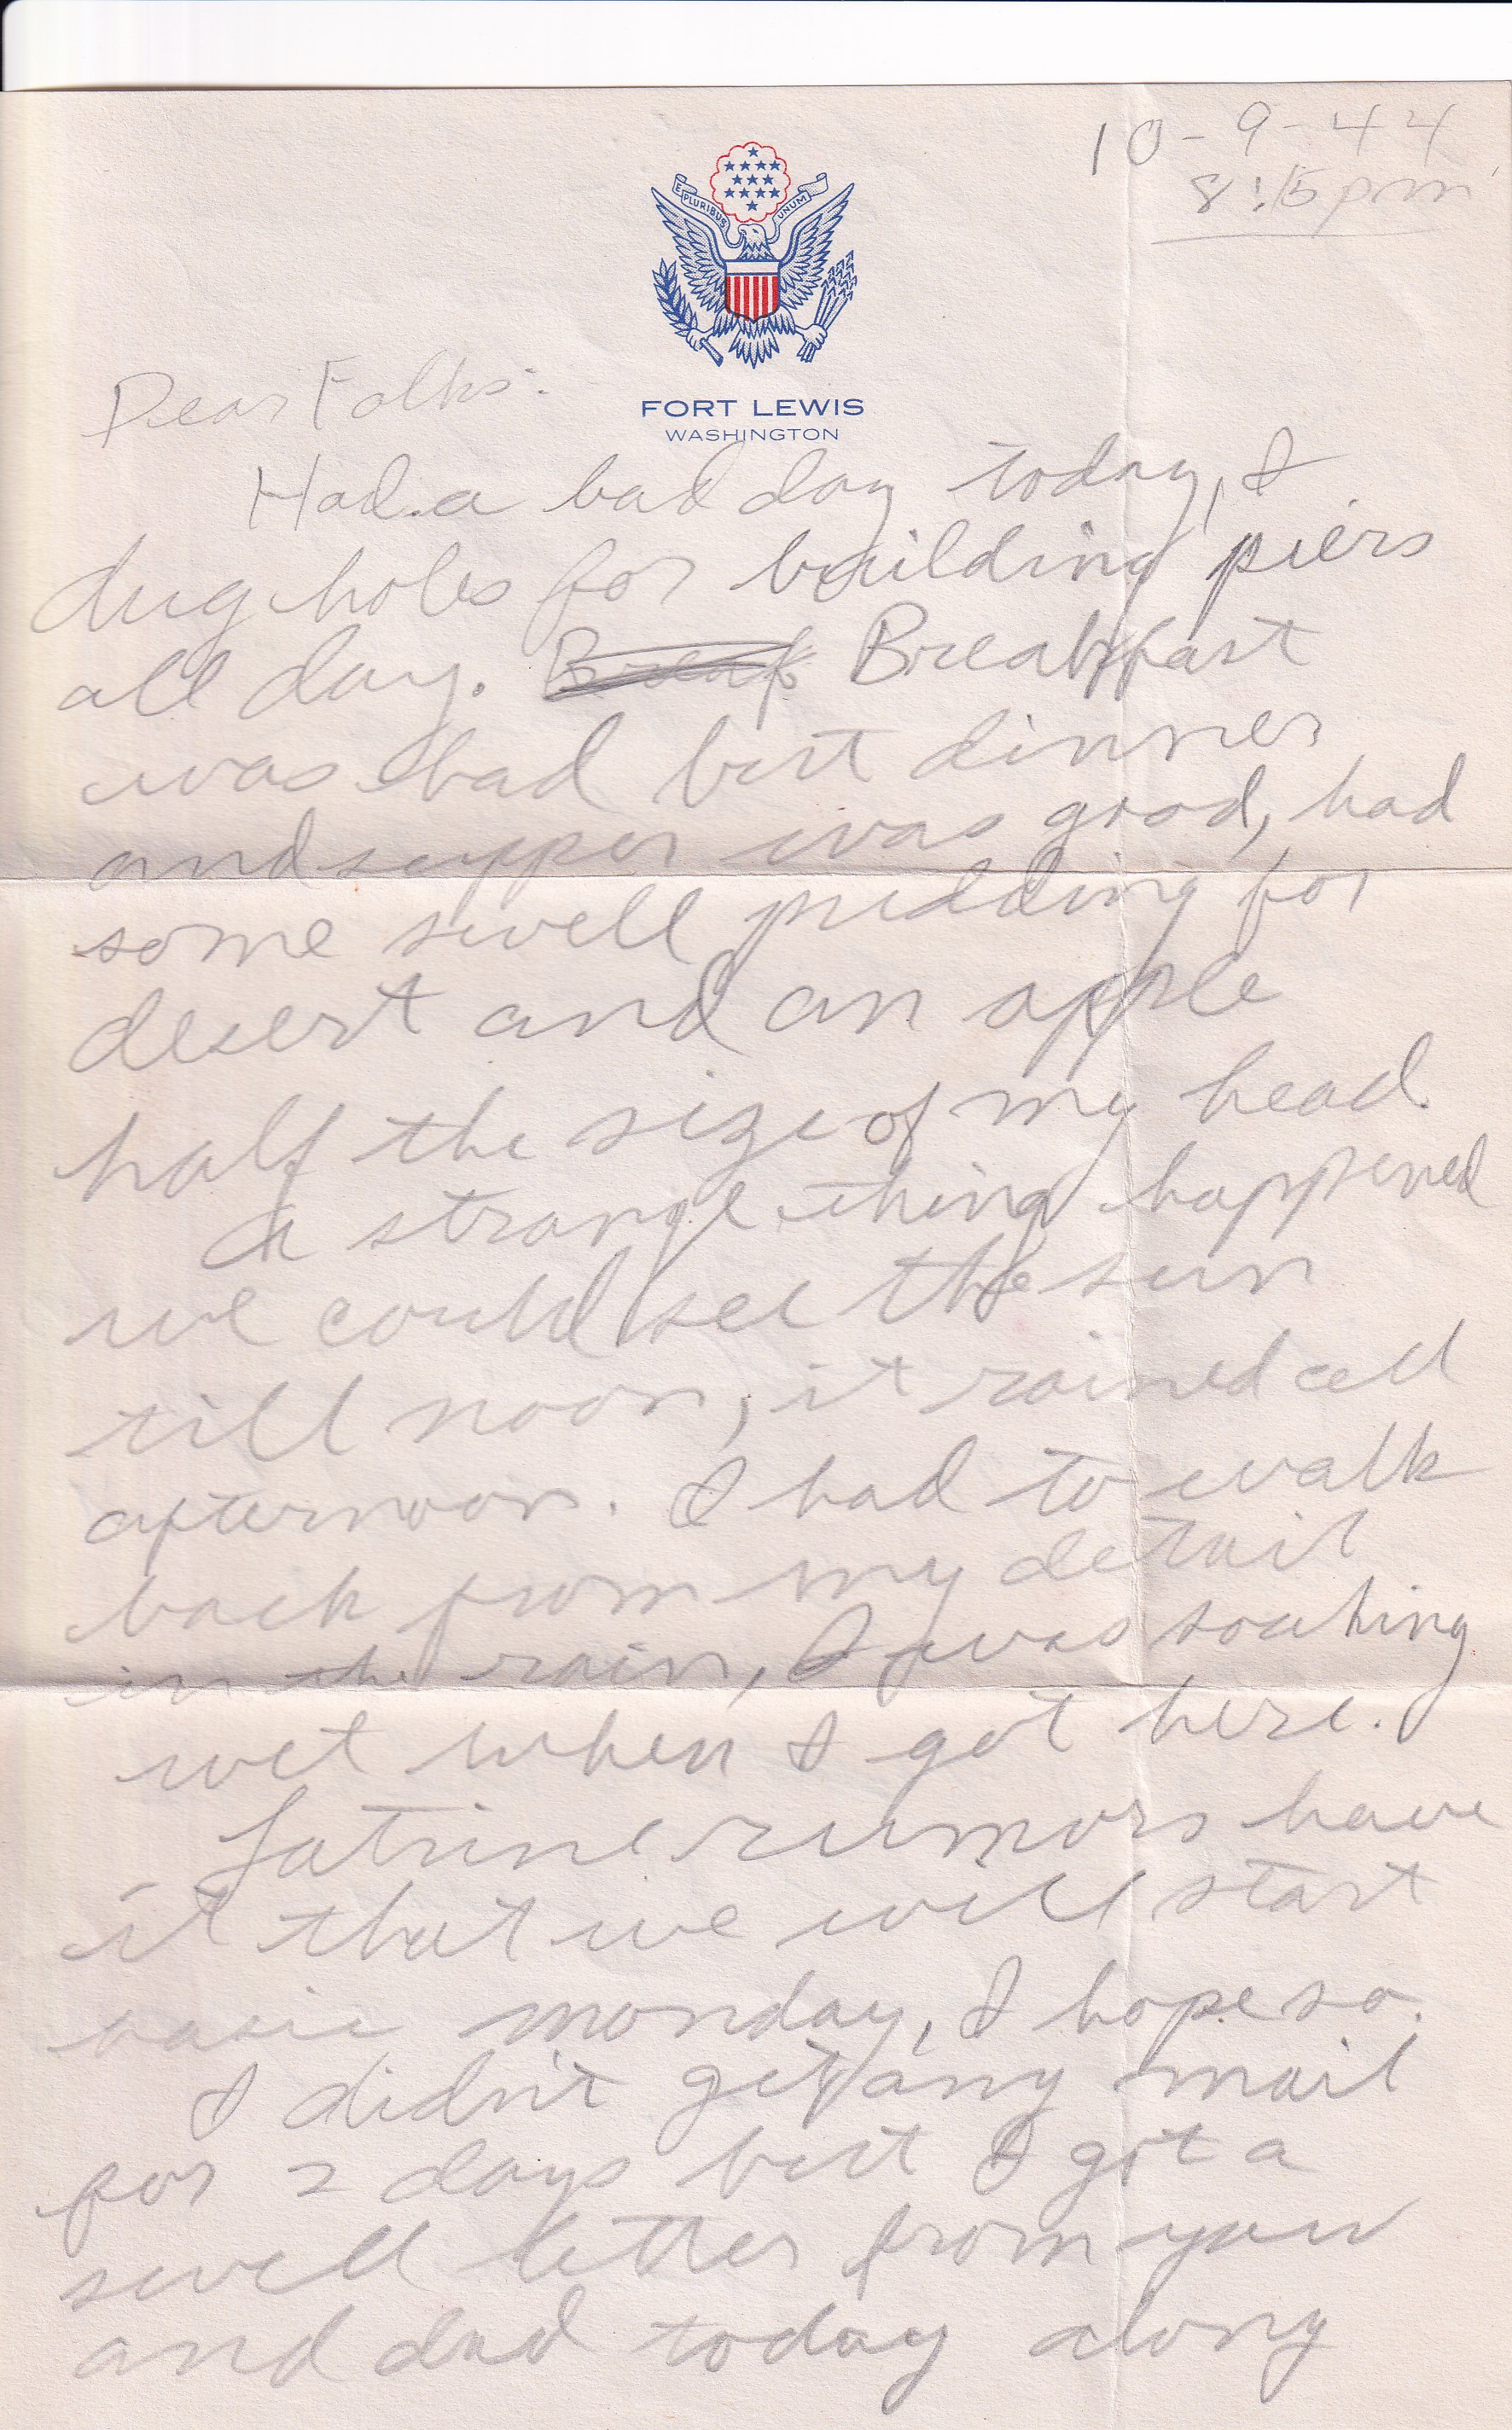 10-9-44
8:15pm
E PLURIBUS UNUM
FORT LEWIS
WASHINGTON
Dear Folks:
Had a bad day today, I
dug holes for building piers
all day. Break Breakfast
was bad but dinner
and supper was good, had
some swell pudding for
desert and an apple
half the size of my head.
A strange thing happened
we could see the sun
till noon, it rained all
afternoon. I had to walk
back from my detail
in the rain, I was soaking
wet when I got here.
Latrine rumors have
it that we will start
basic monday, I hope so.
I didn't get any mail
for 2 days but I got a
swell letter from you
and dad today along